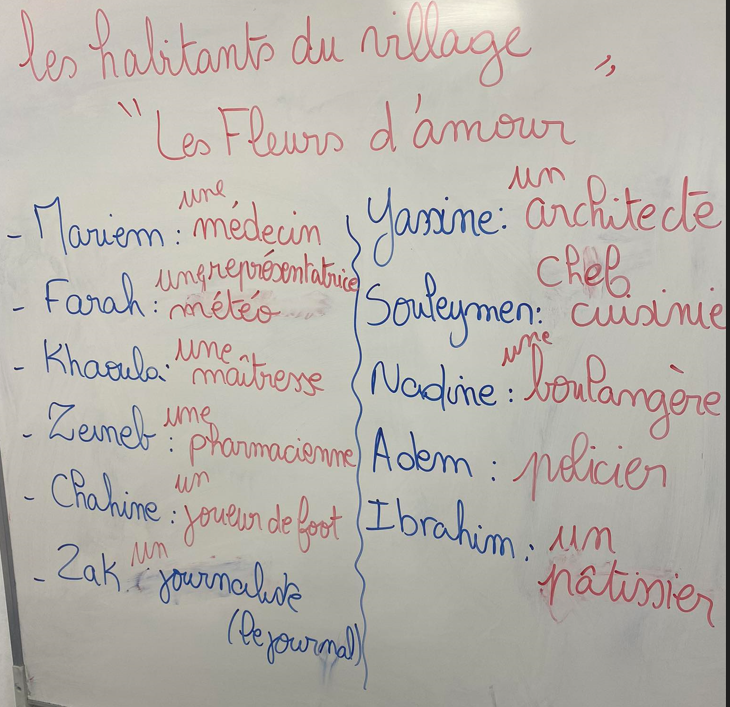 les habitants du village
"Les Fleurs d'amour"
- Mariem : une médecin
- Farah : une représentatrice
météo
- Khaoula : une maîtresse
- Zeineb : une pharmacienne
- Chahine : un joueur de foot
- Zak : un journaliste
(le journal)
Yassine : un architecte
Souleymen : chef
cuisinie
Nadine : une boulangère
Adem : policier
Ibrahim : un
pâtissier